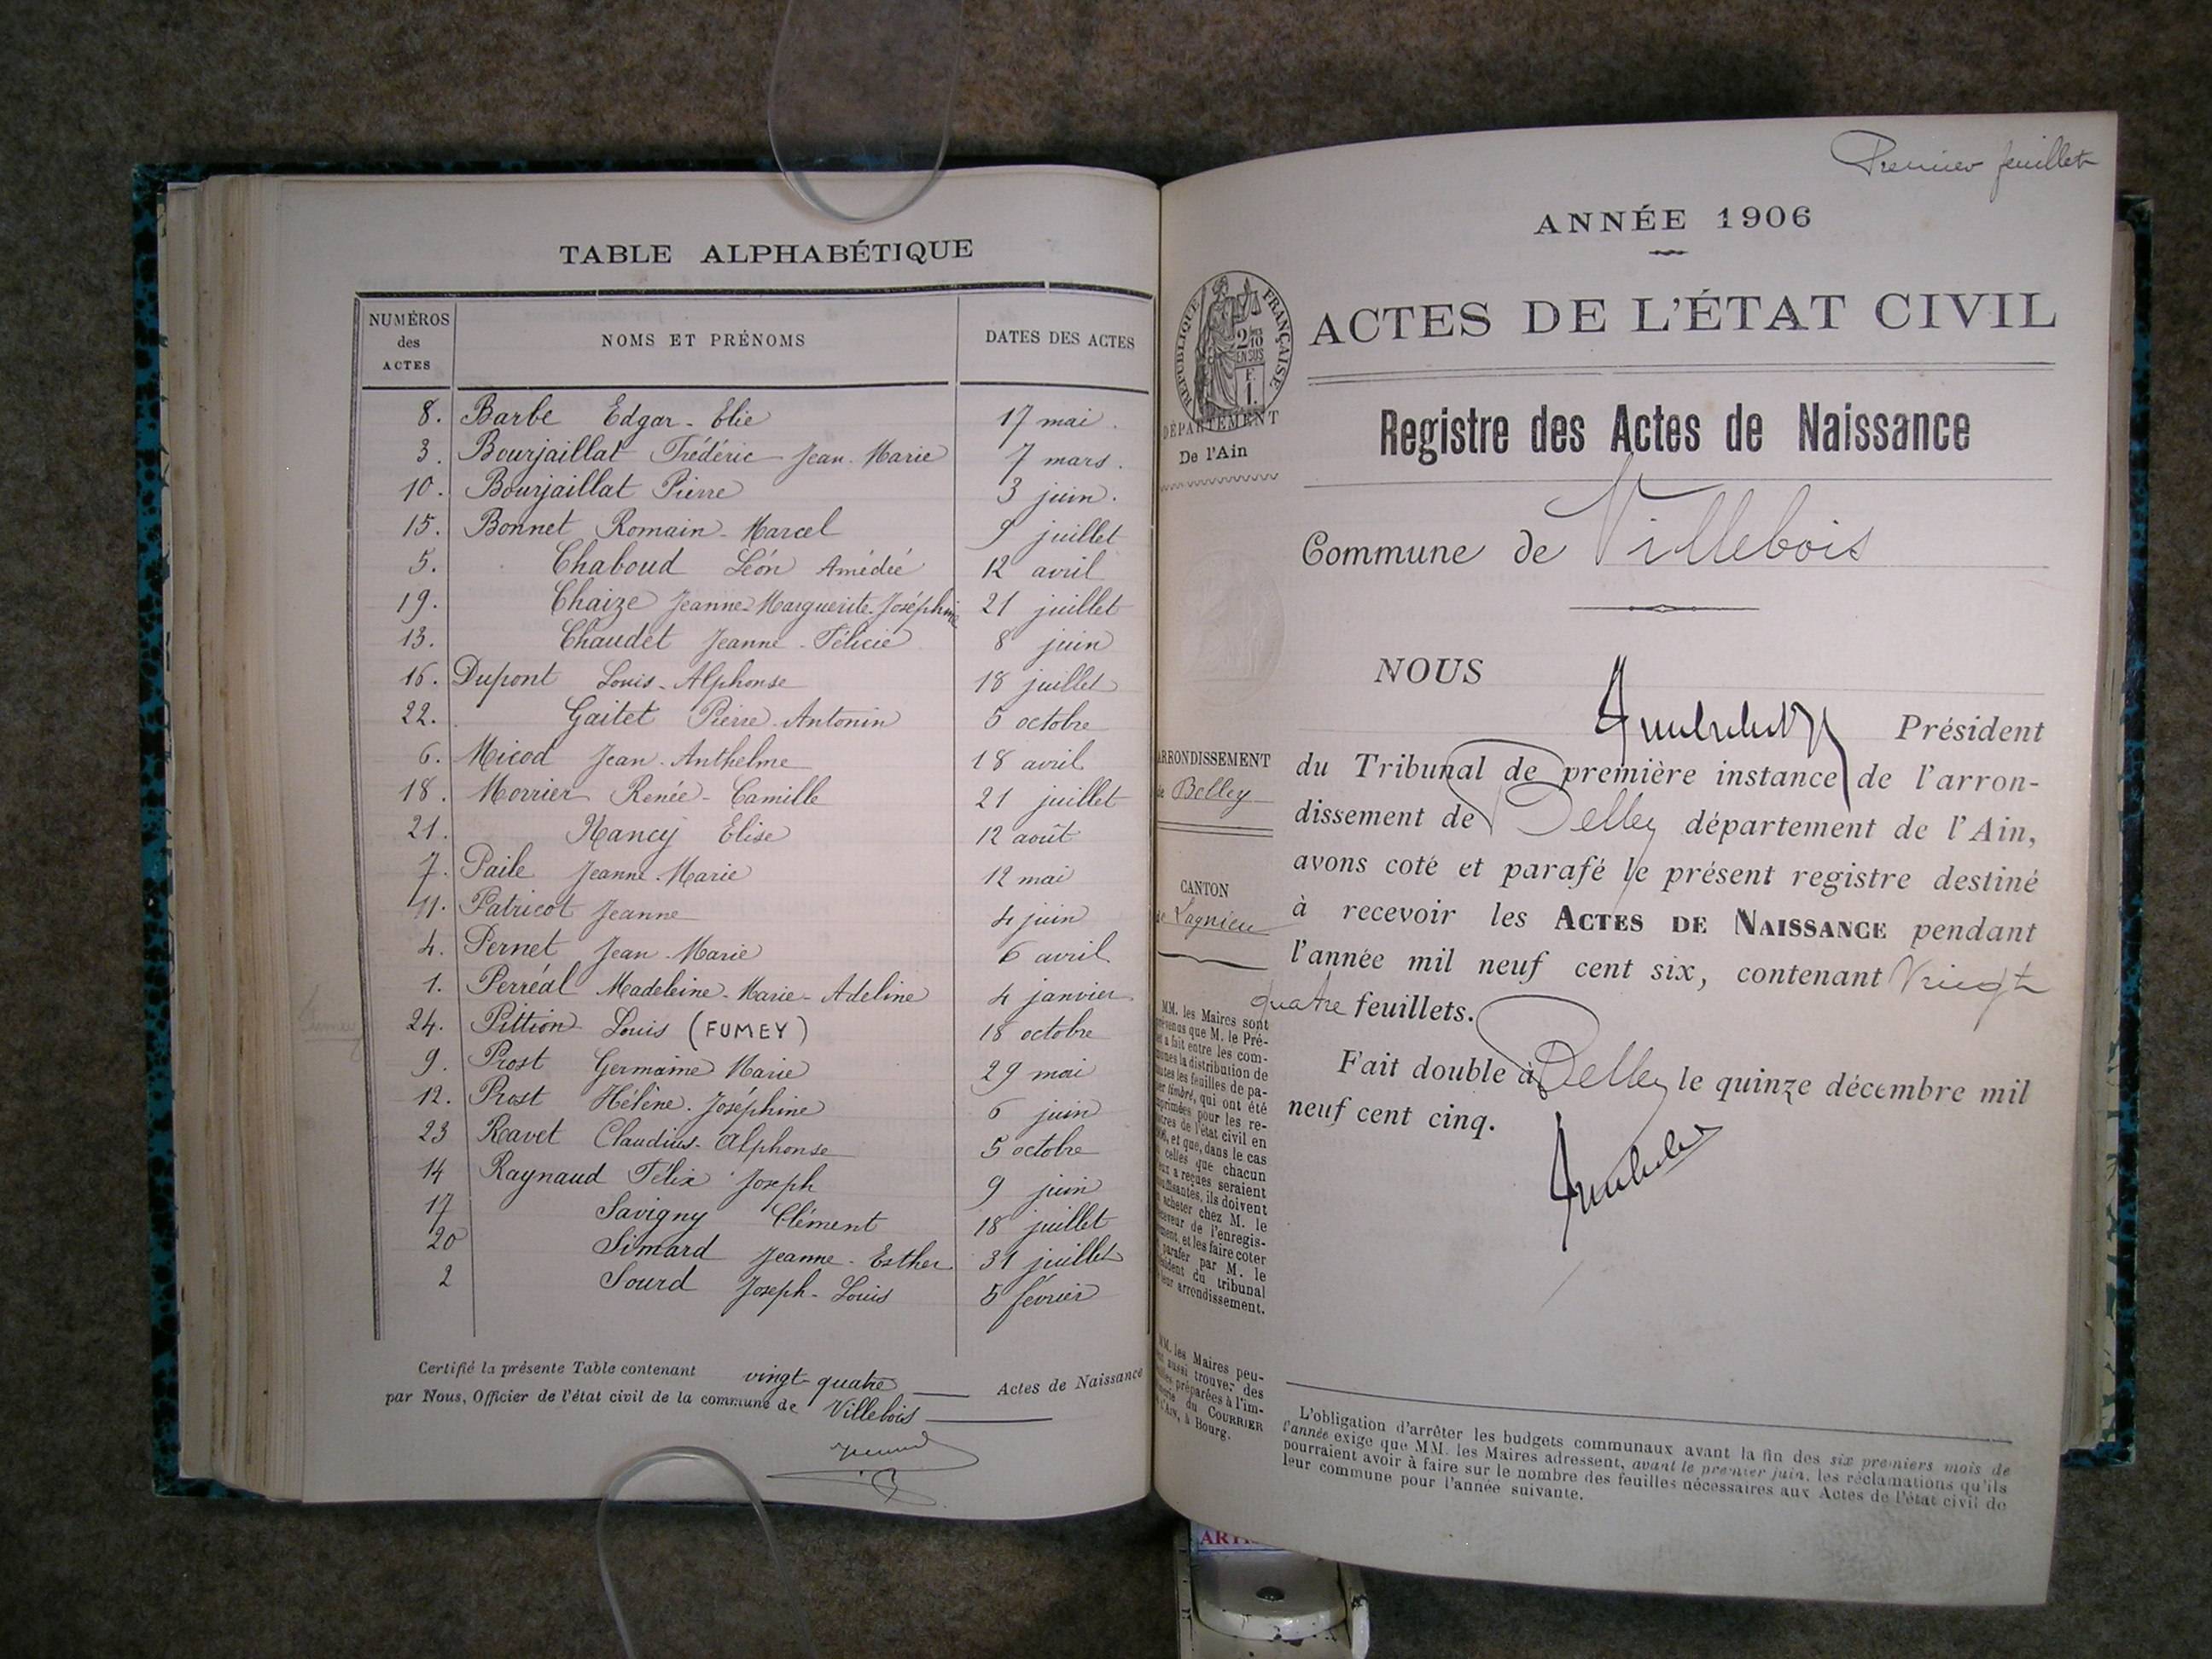 TABLE ALPHABÉTIQUE
NUMÉROS des ACTES NOMS ET PRÉNOMS DATES DES ACTES
8. Barbe Edgar-Elie 17 mai.
3. Bourjaillat Frédéric Jean-Marie 7 mars.
10. Bourjaillat Pierre 3 juin.
15. Bonnet Romain-Marcel 9 juillet
5. Chaboud Léon Amédée 12 avril
19. Chaize Jeanne-Marguerite-Joséphine 21 juillet
13. Chaudet Jeanne-Félicie 8 juin
16. Dupont Louis-Alphonse 18 juillet
22. Gaitet Pierre-Antonin 5 octobre
6. Micod Jean-Anthelme 18 avril
18. Morrier Renée-Camille 21 juillet
21. Nancy Elise 12 août
7. Paile Jeanne-Marie 12 mai
11. Patricot Jeanne 4 juin
4. Pernet Jean-Marie 6 avril
1. Perréal Madeleine-Marie-Adeline 4 janvier
24. Pittion Louis (FUMEY) 18 octobre
9. Prost Germaine Marie 29 mai
12. Prost Hélène-Joséphine 6 juin
23 Ravet Claudius-Alphonse 5 octobre
14 Raynaud Félix Joseph 9 juin
17 Savigny Clément 18 juillet
20 Simard Jeanne-Esther 31 juillet
2 Sourd Joseph-Louis 5 février
Certifié la présente Table contenant vingt-quatre Actes de Naissance
par Nous, Officier de l'état civil de la commune de Villebois
Premier feuillet
ANNÉE 1906
ACTES DE L'ÉTAT CIVIL
RÉPUBLIQUE FRANÇAISE
2/10 EN SUS
F. 1.
DÉPARTEMENT
De l'Ain
Registre des Actes de Naissance
Commune de Villebois
NOUS
Président
du Tribunal de première instance de l'arron-
dissement de Belley département de l'Ain,
avons coté et parafé le présent registre destiné
à recevoir les ACTES DE NAISSANCE pendant
l'année mil neuf cent six, contenant Vingt
quatre feuillets.
Fait double à Belley le quinze décembre mil
neuf cent cinq.
ARRONDISSEMENT
de Belley
CANTON
de Lagnieu
MM. les Maires sont
prévenus que M. le Pré-
fet a fait entre les com-
munes la distribution de
toutes les feuilles de pa-
pier timbré, qui ont été
imprimées pour les re-
gistres de l'état civil en
1906, et que, dans le cas
où celles que chacun
d'eux a reçues seraient
insuffisantes, ils doivent
en acheter chez M. le
receveur de l'enregis-
trement, et les faire coter
et parafer par M. le
président du tribunal
de leur arrondissement.
MM. les Maires peu-
vent aussi trouver des
feuilles préparées à l'im-
primerie du COURRIER
de l'Ain, à Bourg.
L'obligation d'arrêter les budgets communaux avant la fin des six premiers mois de
l'année exige que MM. les Maires adressent, avant le premier juin, les réclamations qu'ils
pourraient avoir à faire sur le nombre des feuilles nécessaires aux Actes de l'état civil de
leur commune pour l'année suivante.